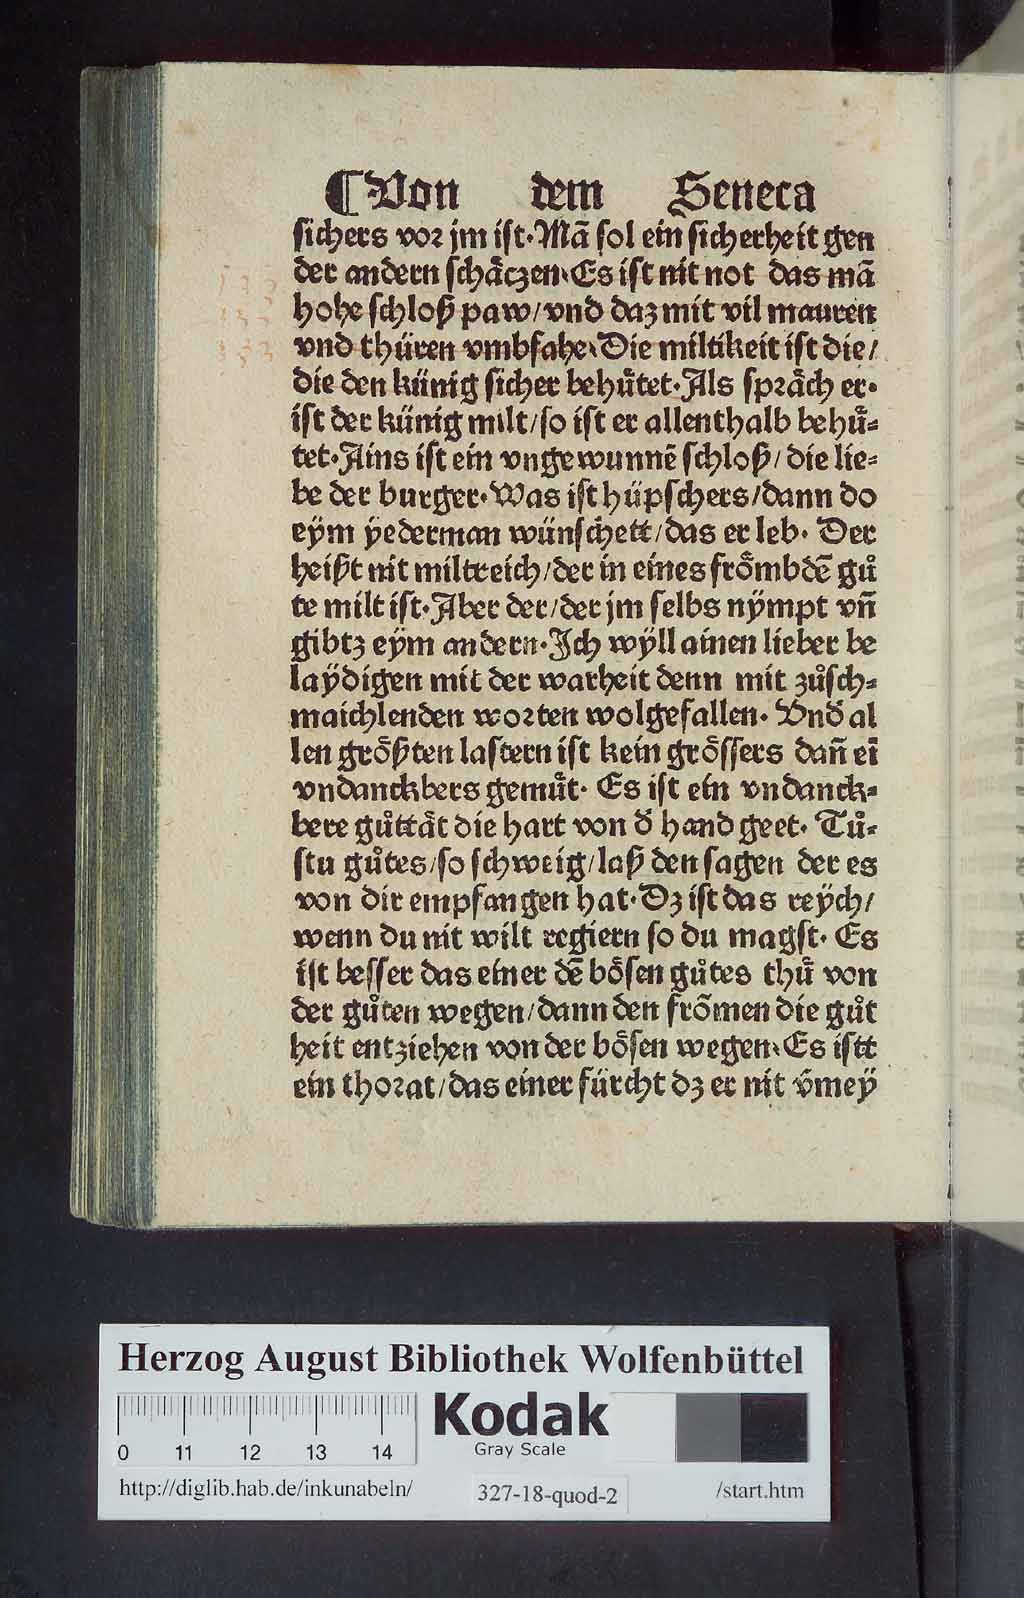 ¶ Von dem Seneca
sichers vor jm ist. Mā sol ein sicherheit gen
der andern schaͤczen. Es ist nit not das mā
hohe schloß paw/vnd daz mit vil mauren
vnd thüren vmbfahe. Die miltikeit ist die/
die den künig sicher behuͤtet. Als spraͤch er.
ist der künig milt/so ist er allenthalb behuͤ-
tet. Ains ist ein vngewunnē schloß/die lie-
be der burger. Was ist hüpschers/dann do
eÿm ÿederman wünschett/das er leb. Der
heißt nit miltreich/der in eines froͤmbdē guͦ
te milt ist. Aber der/der jm selbs nÿmpt vn̄
gibtz eÿm andern. Ich wÿll ainen lieber be
laÿdigen mit der warheit denn mit zuͦsch-
maichlenden worten wolgefallen. Vnd̓ al
len groͤßten lastern ist kein groͤssers dan̄ eī
vndanckbers gemuͤt. Es ist ein vndanck-
bere guͦttaͤt die hart von d̓ hand geet. Tuͦ-
stu guͦtes/so schweig/laß den sagen der es
von dir empfangen hat. Dz ist das reÿch/
wenn du nit wilt regiern so du magst. Es
ist besser das einer dē boͤsen guͦtes thuͤ von
der guͦten wegen/dann den frōmen die guͦt
heit entziehen von der boͤsen wegen. Es istt
ein thorat/das einer fürcht dz er nit v̄meÿ
Herzog August Bibliothek Wolfenbüttel
Kodak
Gray Scale
0 11 12 13 14
http://diglib.hab.de/inkunabeln/ 327-18-quod-2 /start.htm